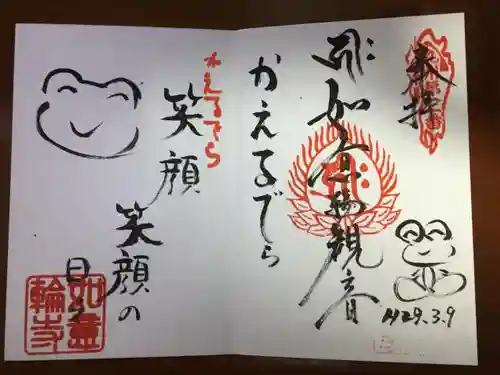 奉拝
如意輪観音
かえるでら
H29.3.9
かえるでら
笑顔
笑顔の
日々
如意
輪寺